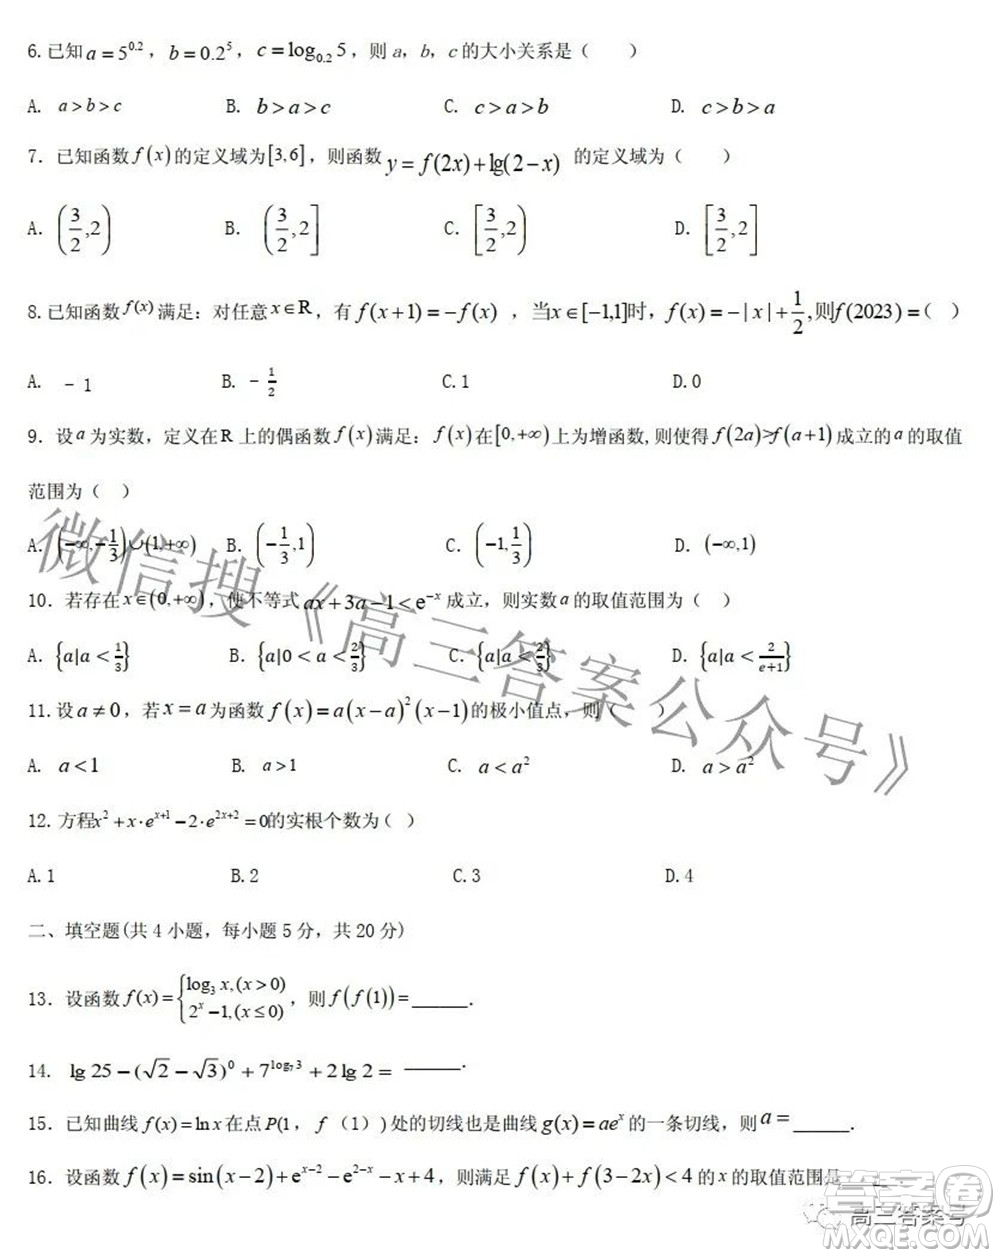 6.已知 a = 5^{0.2}，b = 0.2^5，c = log_{0.2}5，则 a，b，c 的大小关系是（　　）
A. a > b > c　B. b > a > c　C. c > a > b　D. c > b > a
7．已知函数 f(x) 的定义域为[3,6]，则函数 y = f(2x) + lg(2 − x) 的定义域为（　　）
A．(3/2, 2)　B． (3/2, 2]　C．[3/2, 2)　D．[3/2, 2]
8.已知函数 f(x) 满足：对任意 x∈R，有 f(x+1) = −f(x) ，当x∈[−1,1]时，f(x) = −|x| + 1/2 ,则f(2023) =（　）
A. －1　B. －1/2　C.1　D.0
9．设 a 为实数，定义在 R 上的偶函数 f(x) 满足：f(x) 在[0,+∞) 上为增函数,则使得 f(2a)>f(a+1) 成立的 a 的取值
范围为（　）
A．(−∞,−1/3)∪(1,+∞)　B．(−1/3,1)　C．(−1,1/3)　D．(−∞,1)
10．若存在 x∈(0,+∞)，使不等式 ax+3a−1<e^{−x} 成立，则实数 a 的取值范围为（　）
A．{a|a < 1/3}　B．{a|0 < a < 2/3}　C．{a|a < 2/3}　D．{a|a < 2/(e+1)}
11.设 a ≠ 0，若 x = a 为函数 f(x) = a(x−a)^2(x−1) 的极小值点，则（　　）
A. a < 1　B. a > 1　C. a < a^2　D. a > a^2
12.方程x^2 + x·e^{x+1} − 2·e^{2x+2} = 0的实根个数为（ ）
A.1　B.2　C.3　D.4
二、填空题(共 4 小题，每小题 5 分，共 20 分)
13．设函数 f(x) = {log_3 x,(x > 0) 2^x −1,(x ≤ 0)，则 f(f(1)) = ______．
14. lg 25 − (√2 − √3)^0 + 7^{log_7 3} + 2 lg 2 = ______．
15．已知曲线 f(x) = ln x 在点 P(1，f（1）)处的切线也是曲线 g(x) = ae^x 的一条切线，则 a = ______．
16．设函数 f(x) = sin(x−2) + e^{x−2} − e^{2−x} − x + 4，则满足 f(x) + f(3−2x) < 4 的 x 的取值范围是
微信搜《高三答案公众号》
高三答案号
答案圈
MXQE.COM